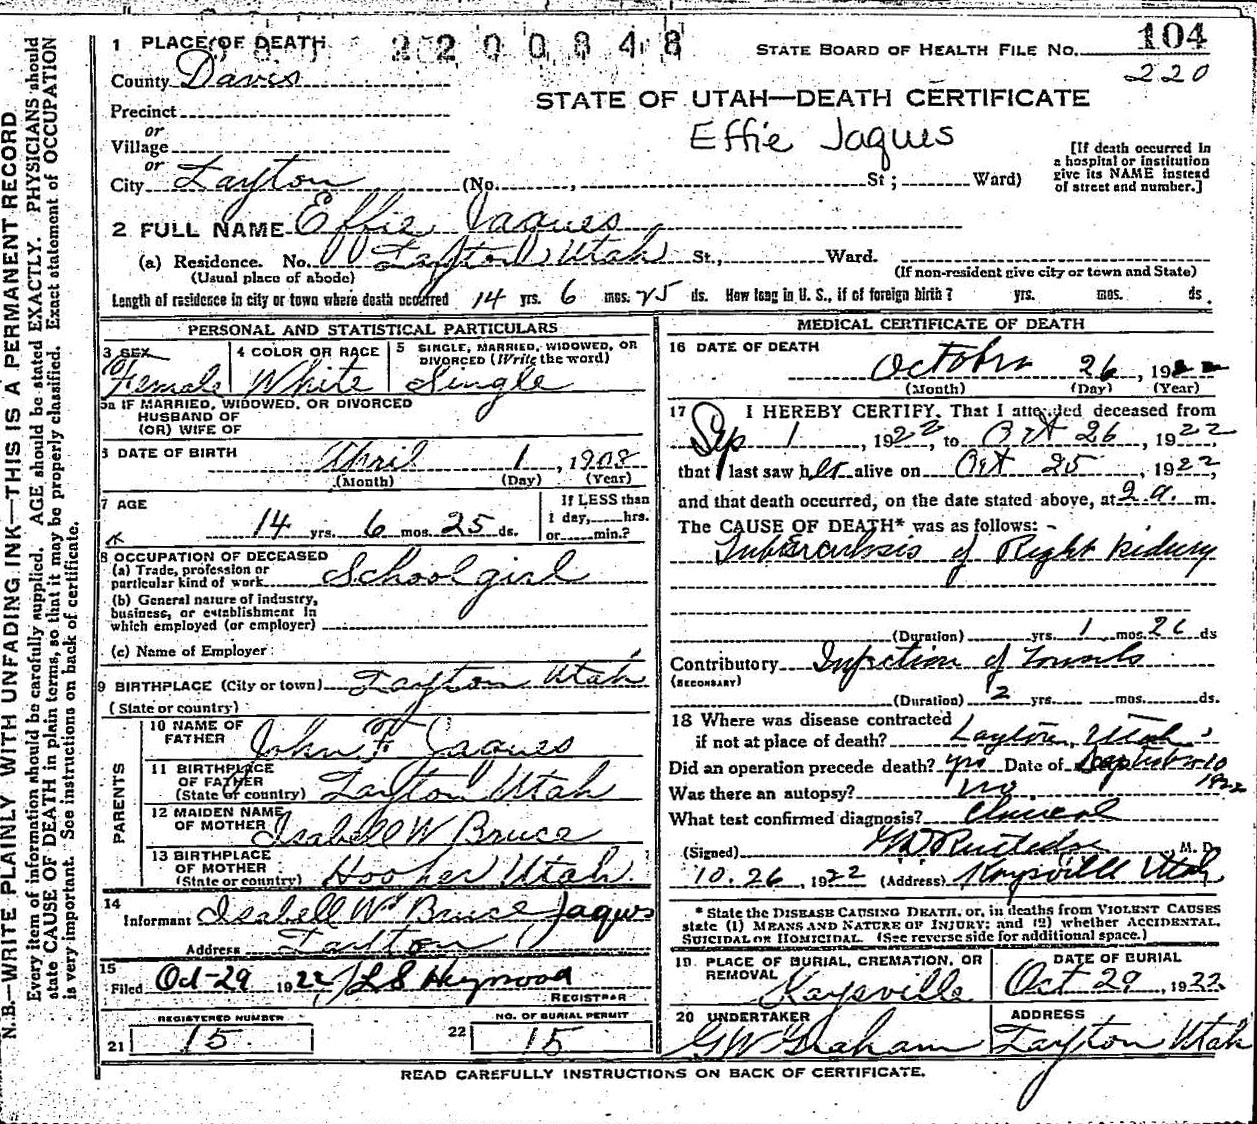 1 PLACE OF DEATH 2200848
STATE BOARD OF HEALTH FILE NO. 104
220
County Davis
STATE OF UTAH—DEATH CERTIFICATE
Precinct
Effie Jaques
or
Village
or
City Layton (No. , St ; Ward)
[If death occurred in
a hospital or institution
give its NAME instead
of street and number.]
2 FULL NAME Effie Jaques
(a) Residence. No. Layton, Utah St., Ward.
(Usual place of abode) (If non-resident give city or town and State)
Length of residence in city or town where death occurred 14 yrs. 6 mos. 25 ds. How long in U. S., if of foreign birth? yrs. mos. ds.
PERSONAL AND STATISTICAL PARTICULARS
3 SEX
Female
4 COLOR OR RACE
White
5 SINGLE, MARRIED, WIDOWED, OR
DIVORCED (Write the word)
Single
5a IF MARRIED, WIDOWED, OR DIVORCED
HUSBAND OF
(OR) WIFE OF
6 DATE OF BIRTH April 1, 1908
(Month) (Day) (Year)
7 AGE
14 yrs. 6 mos. 25 ds.
If LESS than
1 day, hrs.
or min.?
8 OCCUPATION OF DECEASED
(a) Trade, profession or
particular kind of work School girl
(b) General nature of industry,
business, or establishment in
which employed (or employer)
(c) Name of Employer
9 BIRTHPLACE (City or town) Layton Utah
(State or country)
PARENTS
10 NAME OF
FATHER John F Jaques
11 BIRTHPLACE
OF FATHER
(State or country) Layton Utah
12 MAIDEN NAME
OF MOTHER Isabell W Bruce
13 BIRTHPLACE
OF MOTHER
(State or country) Hooper Utah.
14
Informant Isabell W Bruce Jaques
Address Layton
15
Filed Oct-29 1922 L S Heywood
REGISTRAR
REGISTERED NUMBER
21 15
NO. OF BURIAL PERMIT
22 15
MEDICAL CERTIFICATE OF DEATH
16 DATE OF DEATH
October 26, 1922
(Month) (Day) (Year)
17 I HEREBY CERTIFY, That I attended deceased from
Sep 1, 1922, to Oct 26, 1922,
that I last saw her alive on Oct 25, 1922,
and that death occurred, on the date stated above, at 2 a. m.
The CAUSE OF DEATH* was as follows:
Tuberculosis of Right Kidney
(Duration) yrs. 1 mos. 26 ds
Contributory Infection of Tonsils
(SECONDARY)
(Duration) 2 yrs. mos. ds.
18 Where was disease contracted
if not at place of death? Layton, Utah
Did an operation precede death? yes Date of September 10
1922
Was there an autopsy? no
What test confirmed diagnosis? Clinical
(Signed) Rutledge, M. D.
10.26, 1922 (Address) Kaysville Utah
* State the DISEASE CAUSING DEATH, or, in deaths from VIOLENT CAUSES
state (1) MEANS AND NATURE OF INJURY; and (2) whether ACCIDENTAL,
SUICIDAL OR HOMICIDAL. (See reverse side for additional space.)
19 PLACE OF BURIAL, CREMATION, OR
REMOVAL
Kaysville
DATE OF BURIAL
Oct 29, 1922
20 UNDERTAKER
G W Graham
ADDRESS
Layton Utah
READ CAREFULLY INSTRUCTIONS ON BACK OF CERTIFICATE.
N.B.—WRITE PLAINLY WITH UNFADING INK—THIS IS A PERMANENT RECORD
Every item of information should be carefully supplied. AGE should be stated EXACTLY. PHYSICIANS should
state CAUSE OF DEATH in plain terms, so that it may be properly classified. Exact statement of OCCUPATION
is very important. See instructions on back of certificate.